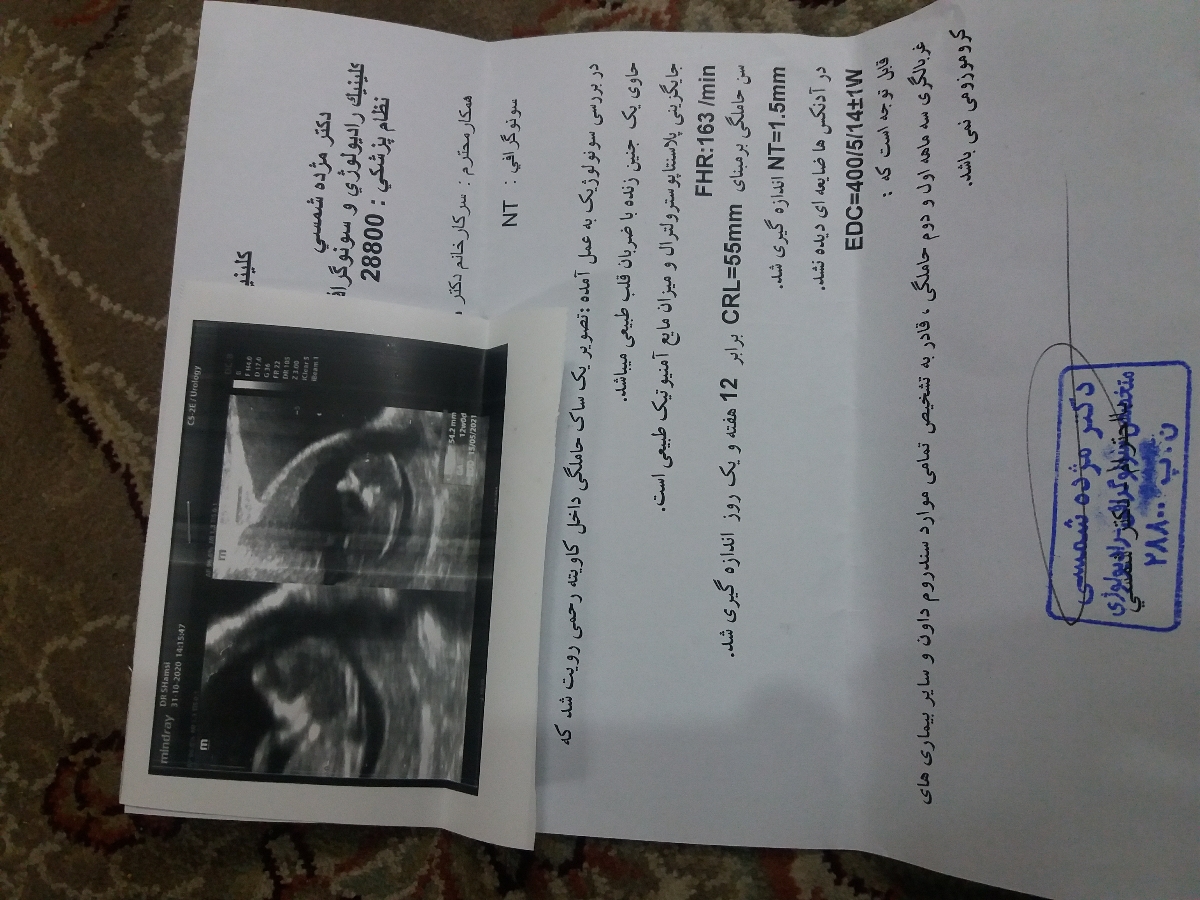 کلینی
دکتر مژده شمسي
کلینیك رادیولوژي و سونوگراف
نظام پزشکي : 28800
همکار محترم : سرکار خانم دکتر
سونوگرافي : NT
در بررسی سونولوژیک به عمل آمده :تصویر یک ساک حاملگی داخل کاویته رحمی رویت شد که
حاوی یک جنین زنده با ضربان قلب طبیعی میباشد.
جایگزینی پلاسنتا پوسترولترال و میزان مایع آمنیوتیک طبیعی است.
FHR:163 /min
سن حاملگی برمبنای CRL=55mm برابر 12 هفته و یک روز اندازه گیری شد.
NT=1.5mm اندازه گیری شد.
در آدنکس ها ضایعه ای دیده نشد.
EDC=400/5/14±1W
قابل توجه است که :
غربالگری سه ماهه اول و دوم حاملگی ، قادر به تشخیص تمامی موارد سندروم داون و سایر بیماری های
کروموزومی نمی باشد.
دکتر مژده شمسی
متخصص رادیولوژی
ن.پ ۲۸۸۰۰
mindray
DR SHamsi
31-10-2020 14:15:47
C5-2E / Urology
m
m
B
F H4.0
D 17.0
G 36
FR 22
DR 105
iClear 3
iBeam 1
54.2 mm
GA 12w0d
EDD 15/05/2021